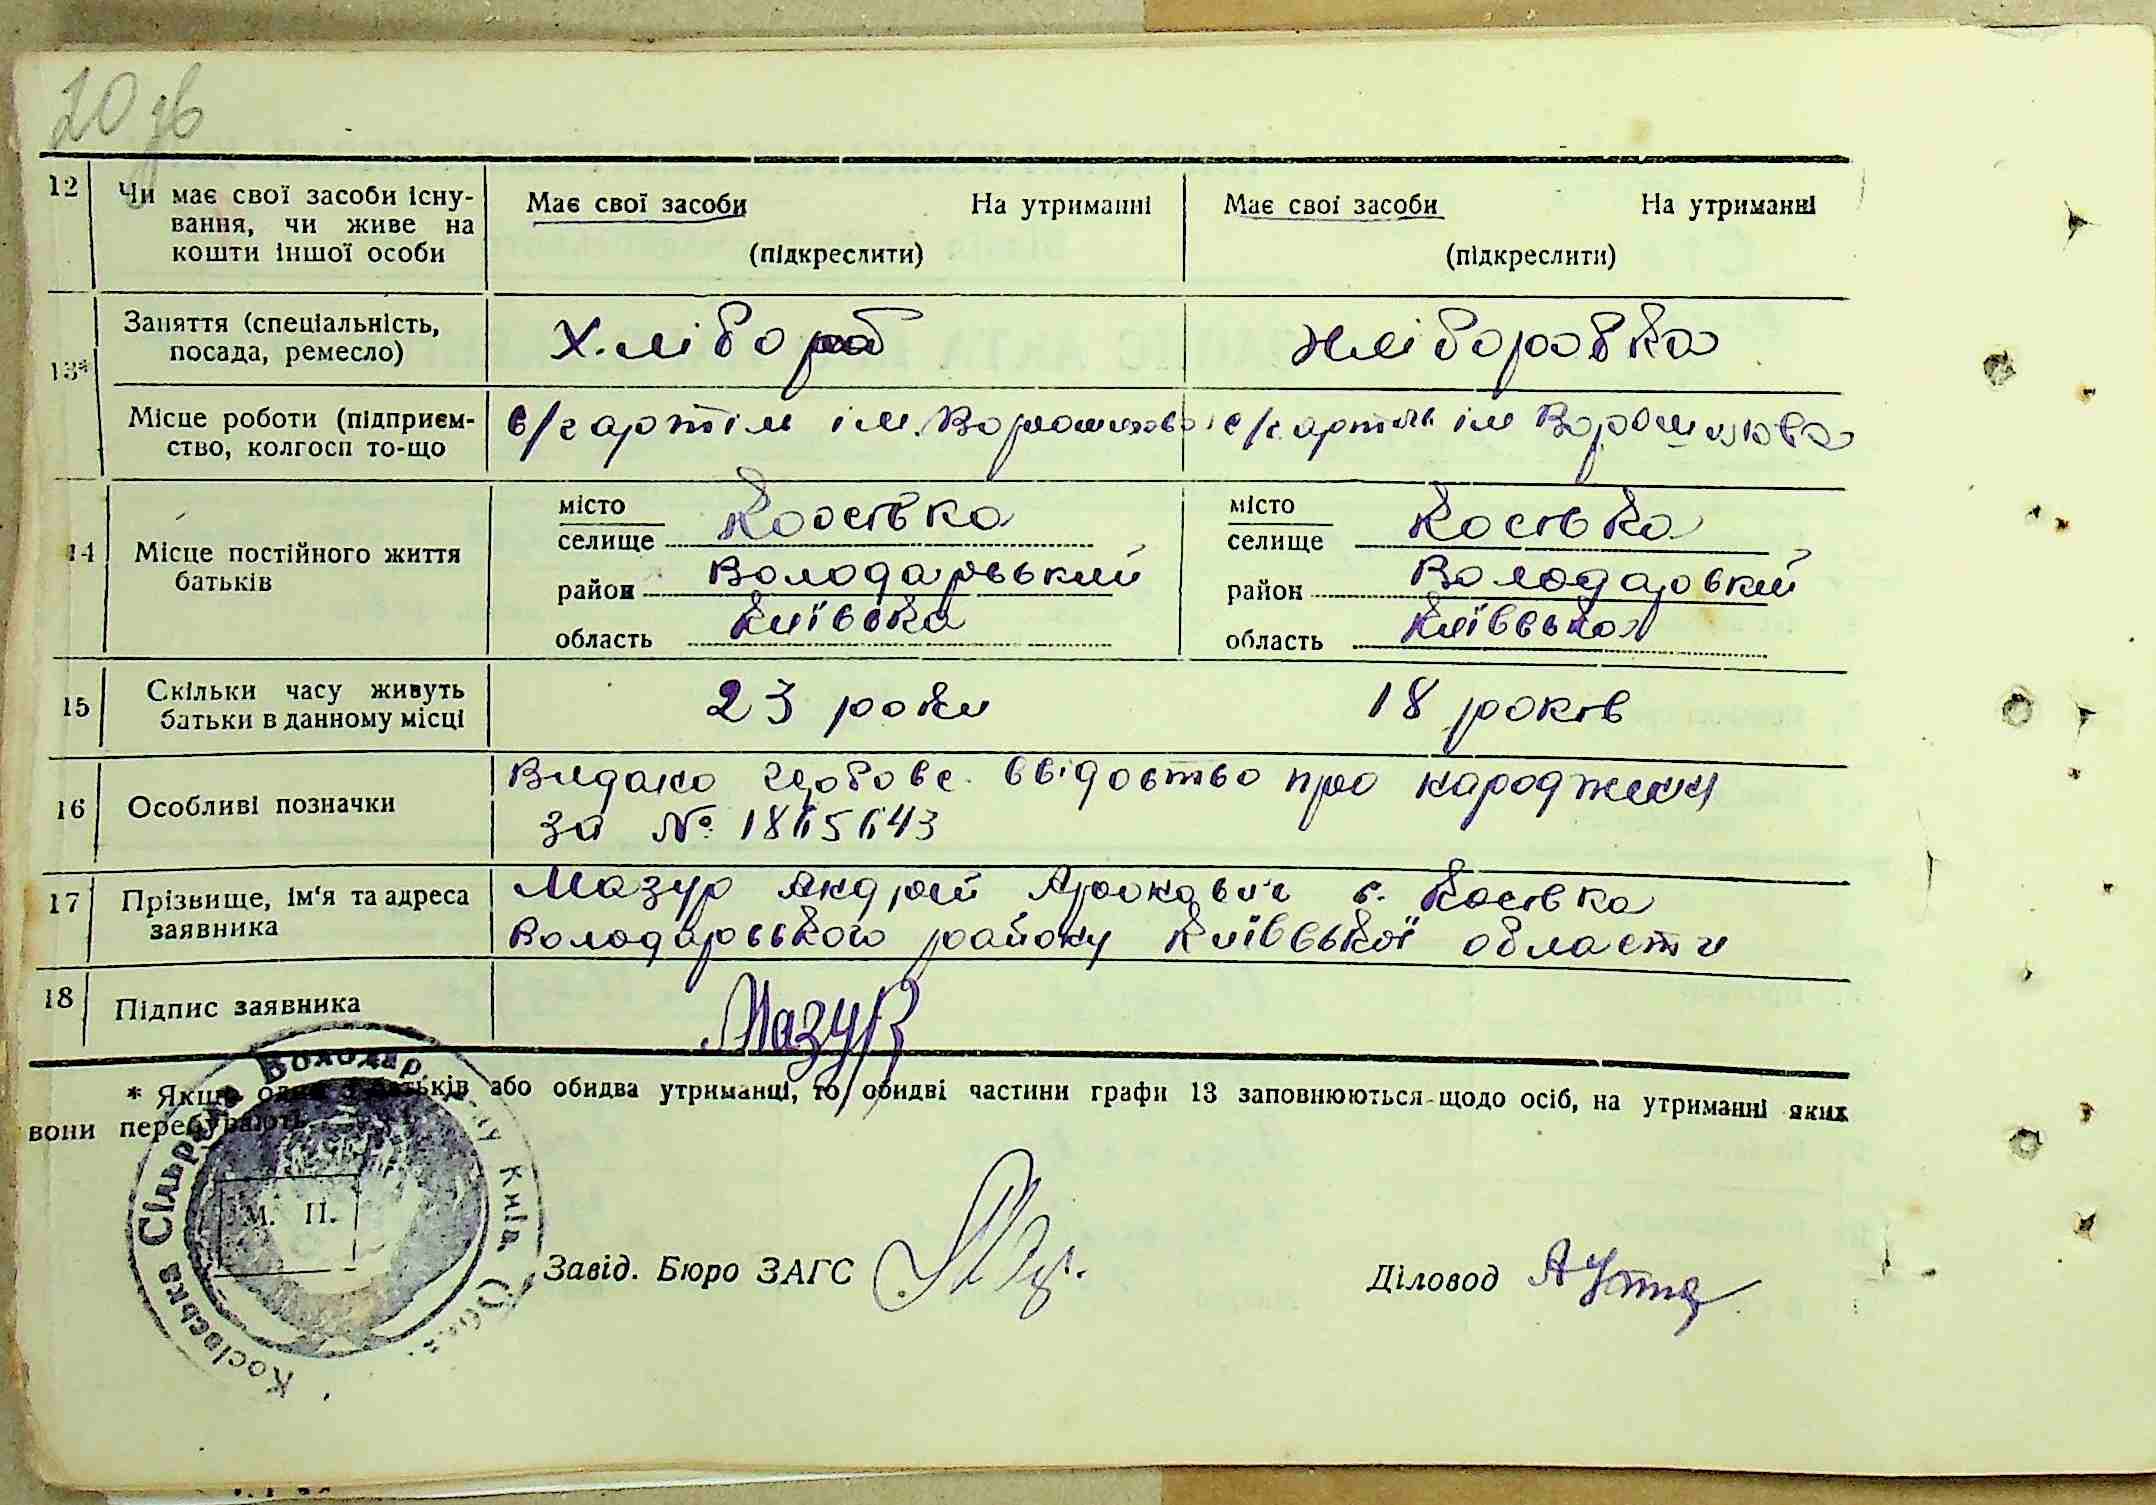 20 зв
12 Чи має свої засоби існу- Має свої засоби На утриманні Має свої засоби На утриманні
вання, чи живе на
кошти іншої особи (підкреслити) (підкреслити)
13* Заняття (спеціальність, Хлібороб Хліборобка
посада, ремесло)
Місце роботи (підприєм- с/г артіль ім. Ворошилова с/г. артіль ім Ворошилова
ство, колгосп то-що
14 Місце постійного життя місто Косівка місто Косівка
батьків селище селище
район Володарський район Володарський
область Київська область Київська
15 Скільки часу живуть 23 роки 18 років
батьки в данному місці
16 Особливі позначки Видано свідоство про народження
за № 1865643
17 Прізвище, ім'я та адреса Мазур Андрій с. Косівка
заявника Володарського району Київської области
18 Підпис заявника Мазур
* Якщо один з батьків або обидва утриманці, то обидві частини графи 13 заповнюються щодо осіб, на утриманні яких
вони перебувають
Косівська Сільрада Володар. Київ. Обл.
М. П.
Завід. Бюро ЗАГС
Діловод